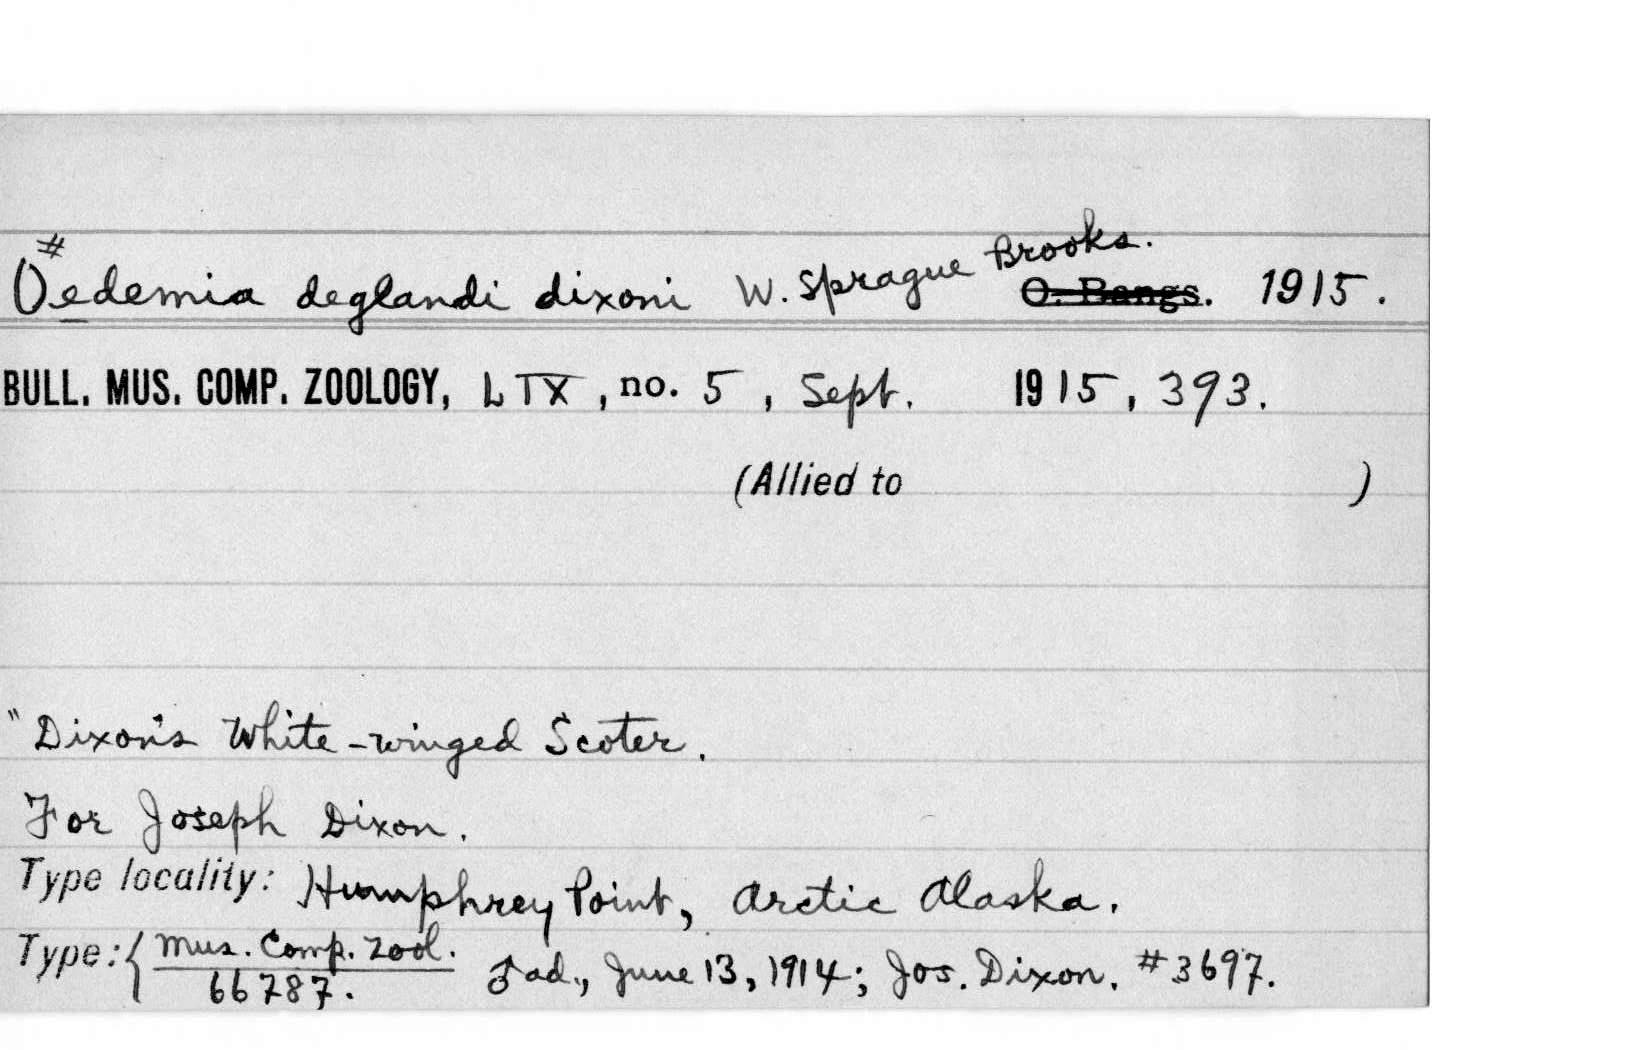 #
Oedemia deglandi dixoni W. Sprague Brooks. O. Bangs. 1915.
BULL. MUS. COMP. ZOOLOGY, LIX, no. 5, Sept. 1915, 393.
(Allied to )
"Dixon's White-winged Scoter.
For Joseph Dixon.
Type locality: Humphrey Point, Arctic Alaska.
Type: { Mus. Comp. Zool. ♂ ad., June 13, 1914; Jos. Dixon. #3697.
66787.